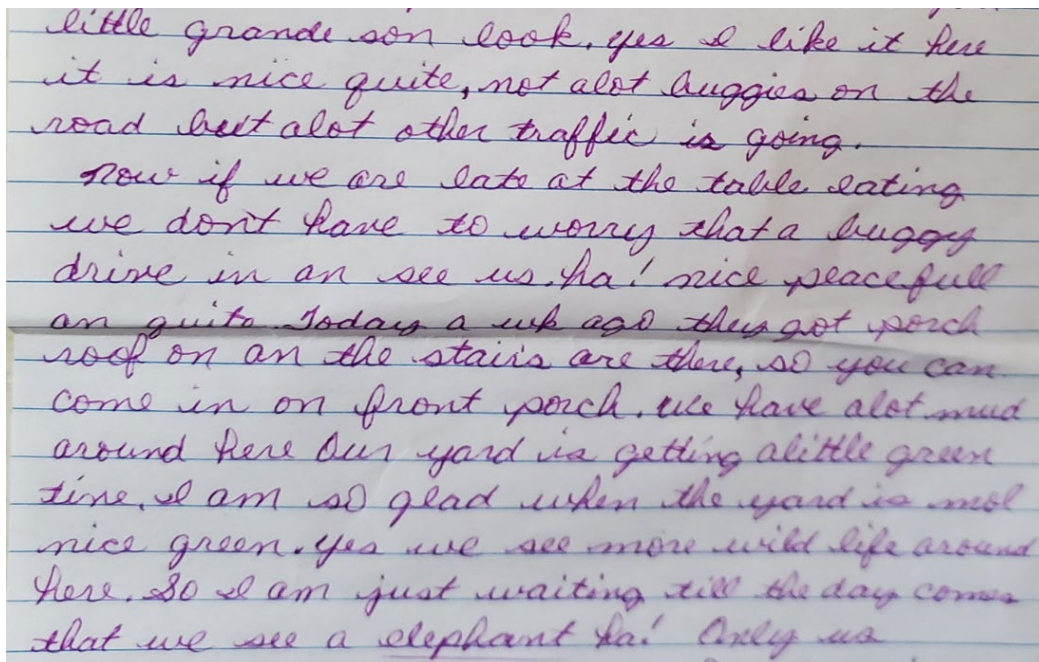 little grande son look. yes I like it here
it is nice quite, not alot buggies on the
road but alot other traffic is going.
now if we are late at the table eating
we don't have to worry that a buggy
drive in an see us. ha! nice peacefull
an quite. Today a wk ago they got porch
roof on an the stairs are there, so you can
come in on front porch. We have alot mud
around here Our yard is getting alittle green
tine. I am so glad when the yard is mol
nice green. yes we see more wild life around
here. So I am just waiting till the day comes
that we see a elephant ha! Only us